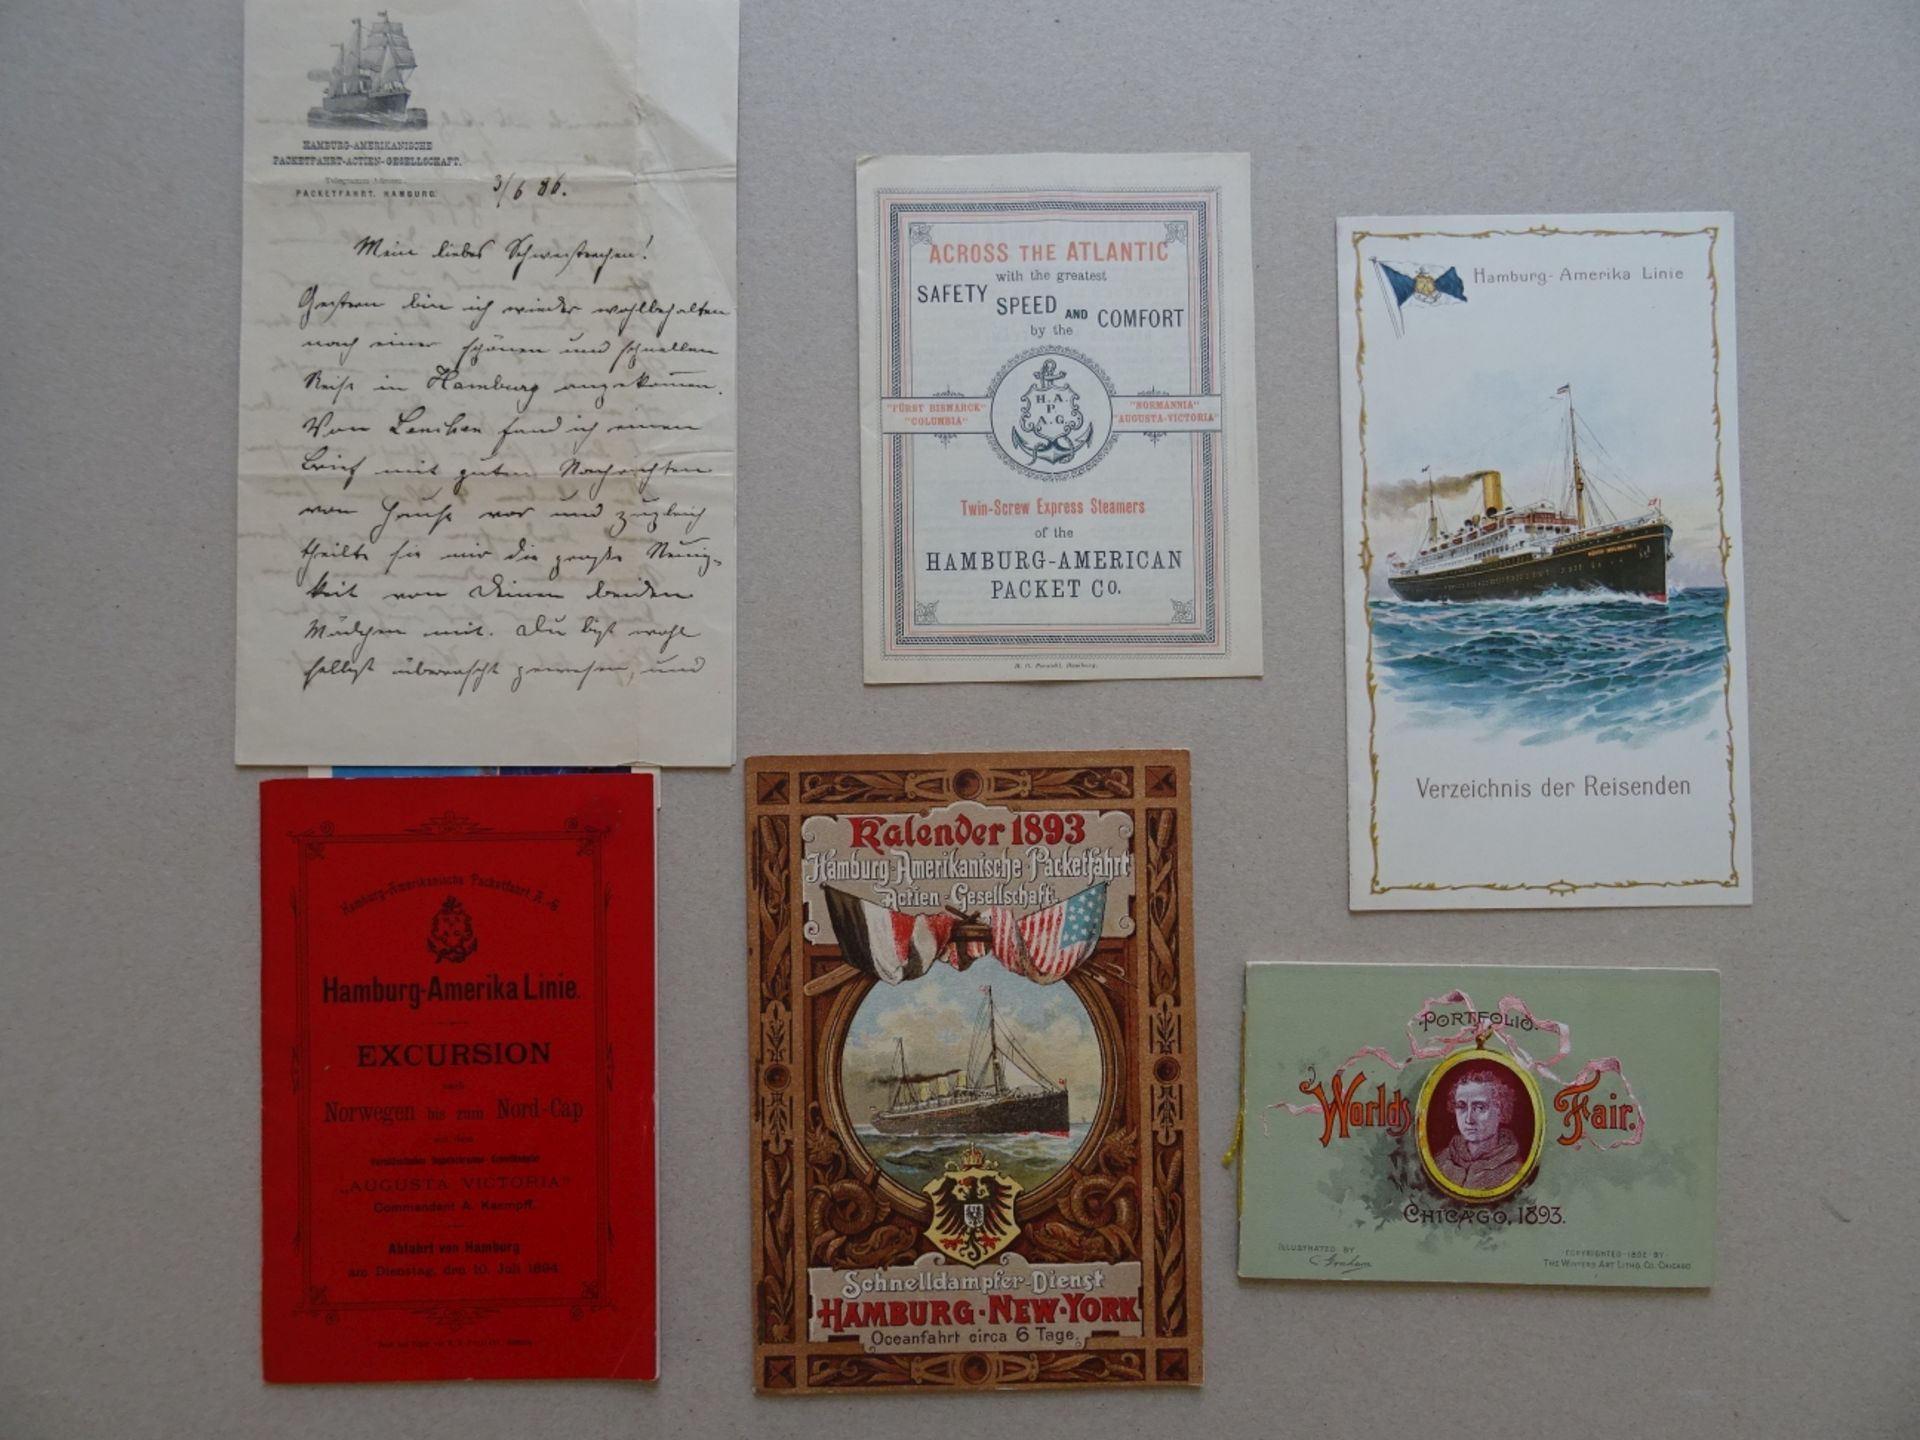 HAMBURG-AMERIKANISCHE
PACKETFAHRT-ACTIEN-GESELLSCHAFT.
PACKETFAHRT. HAMBURG.
3/6 86.
Mein liebes Schwesterchen!
Gestern bin ich wieder wohlbehalten
nach einer schönen und schnellen
Reise in Hamburg angekommen.
Von Lenchen fand ich einen
Brief mit guten Nachrichten
von Hause vor und zugleich
theilte sie mir die große Neuig-
keit von Deinen beiden
Mädchen mit. Du bist wohl
selbst überrascht gewesen, und
ACROSS THE ATLANTIC
with the greatest
SAFETY SPEED AND COMFORT
by the
"FÜRST BISMARCK"
"COLUMBIA"
H.A.
P.
A.G.
"NORMANNIA"
"AUGUSTA-VICTORIA"
Twin-Screw Express Steamers
of the
HAMBURG-AMERICAN
PACKET Co.
Hamburg.
Hamburg-Amerika Linie
Verzeichnis der Reisenden
Hamburg-Amerikanische Packetfahrt A.-G.
Hamburg-Amerika Linie.
EXCURSION
nach
Norwegen bis zum Nord-Cap
mit dem
„AUGUSTA VICTORIA"
Commandant A. Kaempff.
Abfahrt von Hamburg
am Dienstag, den 10. Juli 1894.
Kalender 1893
Hamburg-Amerikanische Packetfahrt
Actien-Gesellschaft.
Schnelldampfer-Dienst
HAMBURG-NEW-YORK
Oceanfahrt circa 6 Tage.
PORTFOLIO.
Worlds Fair.
CHICAGO, 1893.
ILLUSTRATED BY
C. Graham
COPYRIGHTED-1892-BY-
THE WINTERS ART LITHO. CO. CHICAGO